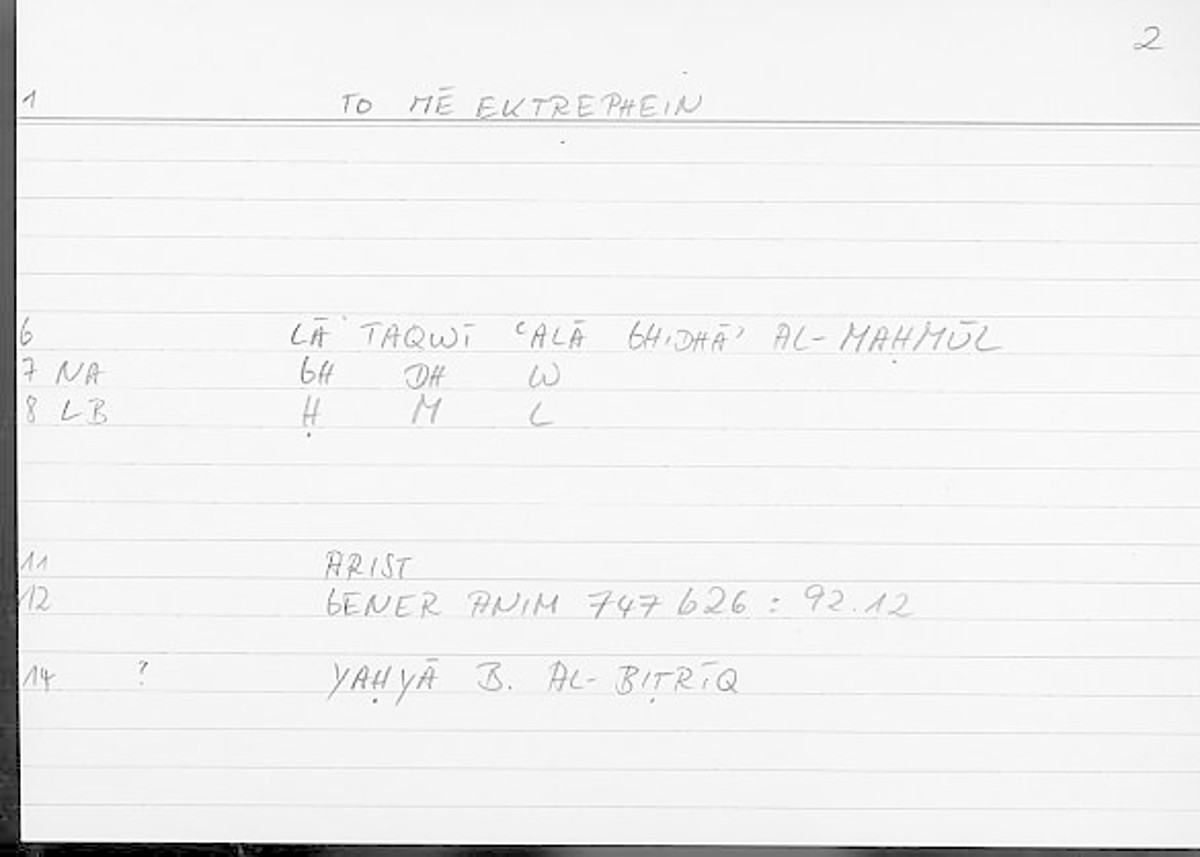 2
1 TO MĒ EKTREPHEIN
6 LĀ TAQWĪ ʿALĀ GHIDHĀʾ AL-MAḤMŪL
7 NA GH DH W
8 LB Ḥ M L
11 ARIST
12 GENER ANIM 747 b26 : 92.12
14 ? YAḤYĀ B. AL-BIṬRĪQ